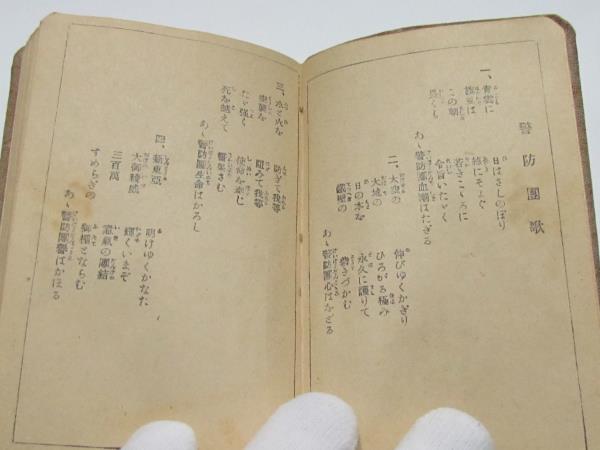 警防團歌
一、青雲に　日はさしのぼり
旗雲は　にそゝぐ
この朝　若きこゝろに
畏くも　令旨いたゞく
あゝ警防團血潮はたぎる
二、大空の　伸びゆくかぎり
大地の　ひろがる極み
日の本を　永久に護りて
鐵壁の　礎きづかむ
あゝ警防團心はをどる
三、水と火を　防ぎて我等
空襲を　阻みて我等
たゞ強く　使命を奉じ
死を越えて
あゝ警防團生命はかろし
四、新東亞　明けゆくかなた
大御稜威　輝くいまぞ
三百萬　意氣の團結
すめらぎの　御楯とならむ
あゝ警防團譽はかほる